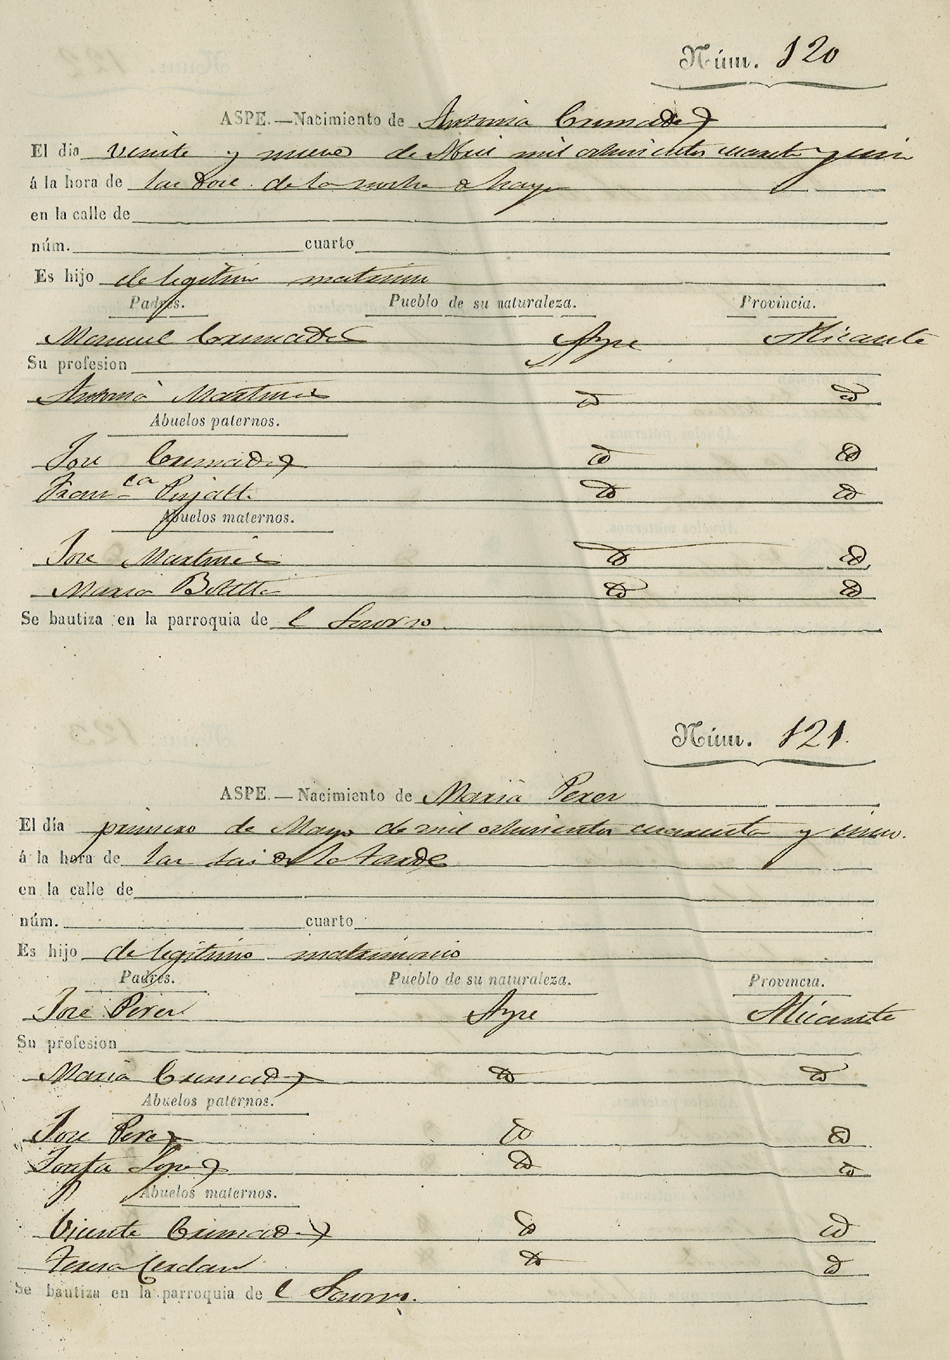 Núm. 120
ASPE.—Nacimiento de Antonia Cremades
El día veinte y nueve de Abril mil ochocientos cuarenta y cinco
á la hora de las doce de la noche
en la calle de
núm. cuarto
Es hijo de legitimo matrimonio
Padres. Pueblo de su naturaleza. Provincia.
Manuel Cremades Aspe Alicante
Su profesion
Antonia Martinez id id
Abuelos paternos.
Jose Cremades id id
Franca Pujalte id id
Abuelos maternos.
Jose Martinez id id
Maria Botella id id
Se bautiza en la parroquia de el Socorro.
Núm. 121.
ASPE.—Nacimiento de Maria Perez
El día primero de Mayo de mil ochocientos cuarenta y cinco.
á la hora de las seis de la tarde
en la calle de
núm. cuarto
Es hijo de legitimo matrimonio
Padres. Pueblo de su naturaleza. Provincia.
Jose Perez Aspe Alicante
Su profesion
Maria Cremades id id
Abuelos paternos.
Jose Perez id id
Josefa Lopez id id
Abuelos maternos.
Vicente Cremades id id
Teresa Cerdan id id
Se bautiza en la parroquia de el Socorro.